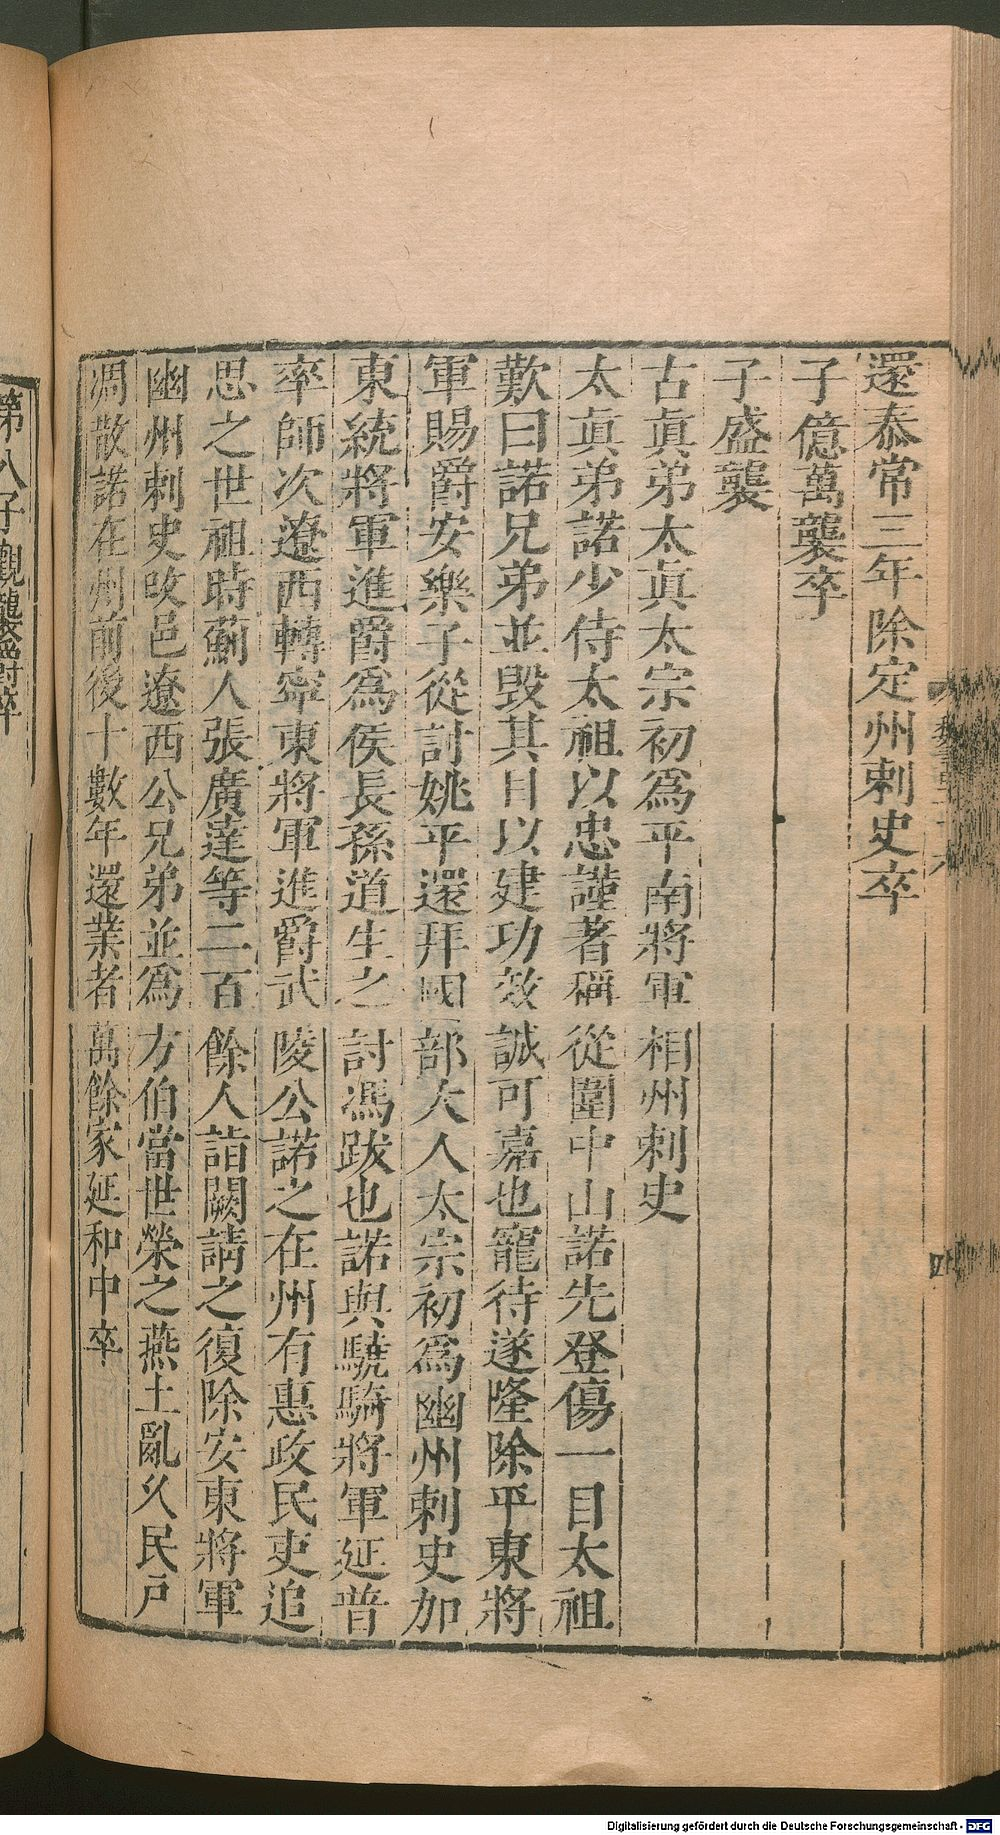 還泰常三年除定州刺史卒
子億萬襲卒
子盛襲
古眞弟太眞太宗初爲平南將軍相州刺史
太眞弟諾少侍太祖以忠謹著稱從圍中山諾先登傷一目太祖
歎曰諾兄弟並毀其目以建功效誠可嘉也寵待遂隆除平東將
軍賜爵安樂子從討姚平還拜國部大人太宗初爲幽州刺史加
東統將軍進爵爲侯長孫道生之討馮跋也諾與驍騎將軍延普
率師次遼西轉寧東將軍進爵武陵公諾之在州有惠政民吏追
思之世祖時薊人張廣達等二百餘人詣闕請之復除安東將軍
幽州刺史改邑遼西公兄弟並爲方伯當世榮之燕土亂久民戶
凋散諾在州前後十數年還業者萬餘家延和中卒
第八子觀襲爵卒
四
Digitalisierung gefördert durch die Deutsche Forschungsgemeinschaft - DFG